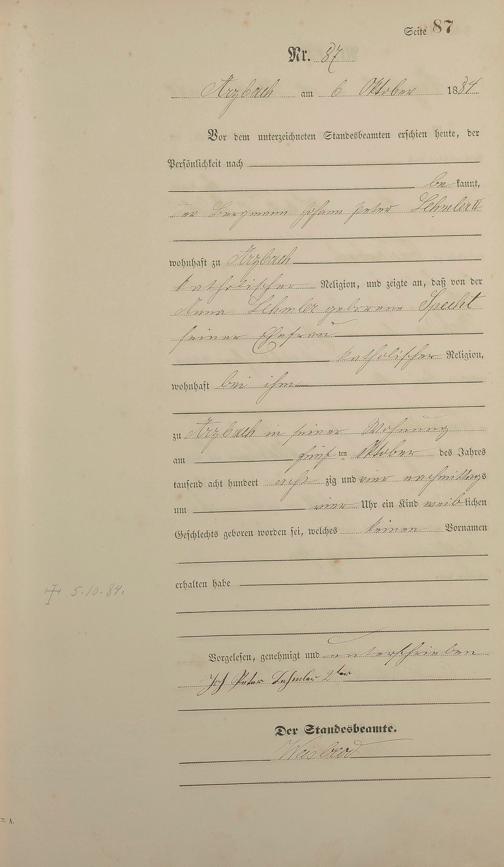 Seite 87
Nr. 87
Arzbach am 6 Oktober 1884
Vor dem unterzeichneten Standesbeamten erschien heute, der
Persönlichkeit nach
be kannt,
er Bergmann Johann Peter Lehmler II
wohnhaft zu Arzbach
katholischer Religion, und zeigte an, daß von der
Anna Lehmler geborene Specht
seiner Ehefrau
katholischer Religion,
wohnhaft bei ihm
zu Arzbach in seiner Wohnung
am fünf ten Oktober des Jahres
tausend acht hundert acht zig und vier nachmittags
um vier Uhr ein Kind weib lichen
Geschlechts geboren worden sei, welches keinen Vornamen
erhalten habe
+ 5.10.84.
Vorgelesen, genehmigt und unterschrieben
Joh Peter Lehmler 2ter
Der Standesbeamte.